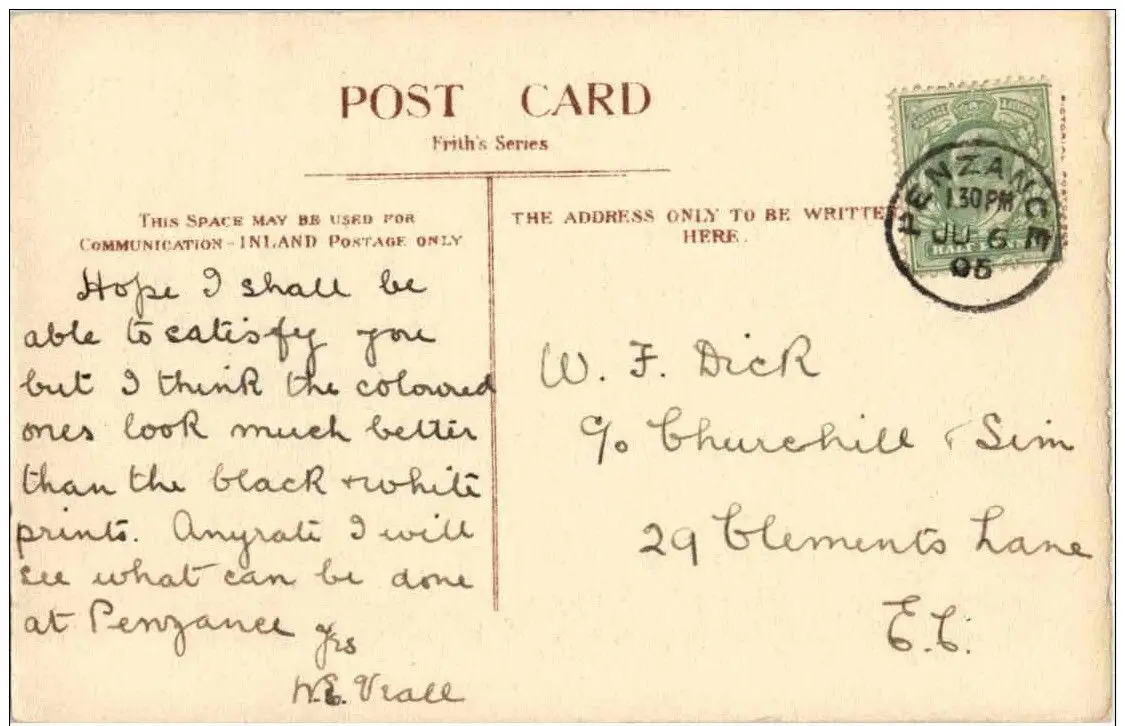 POST CARD
Frith's Series
THIS SPACE MAY BE USED FOR
COMMUNICATION - INLAND POSTAGE ONLY
THE ADDRESS ONLY TO BE WRITTE
HERE.
PENZANCE
1.30PM
JU 6
05
HALF PENNY
Hope I shall be
able to satisfy you
but I think the coloured
ones look much better
than the black + white
prints. Anyrate I will
see what can be done
at Penzance
Yrs
W. F. Dick
c/o Churchill & Sim
29 Clements Lane
E.C.